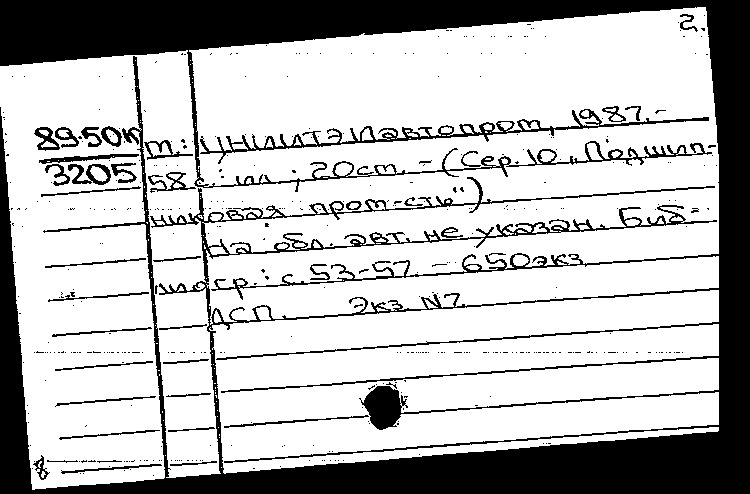 2.
89-50к т.: ЦНИИТЭИавтопром, 1987.-
3205 58 с.: ил ; 20 см. - (Сер. 10 „Подшип-
никовая пром-сть").
На обл. авт. не указан. Биб-
лиогр.: с. 53-57 - 650 экз
ДСП. Экз. N7
8